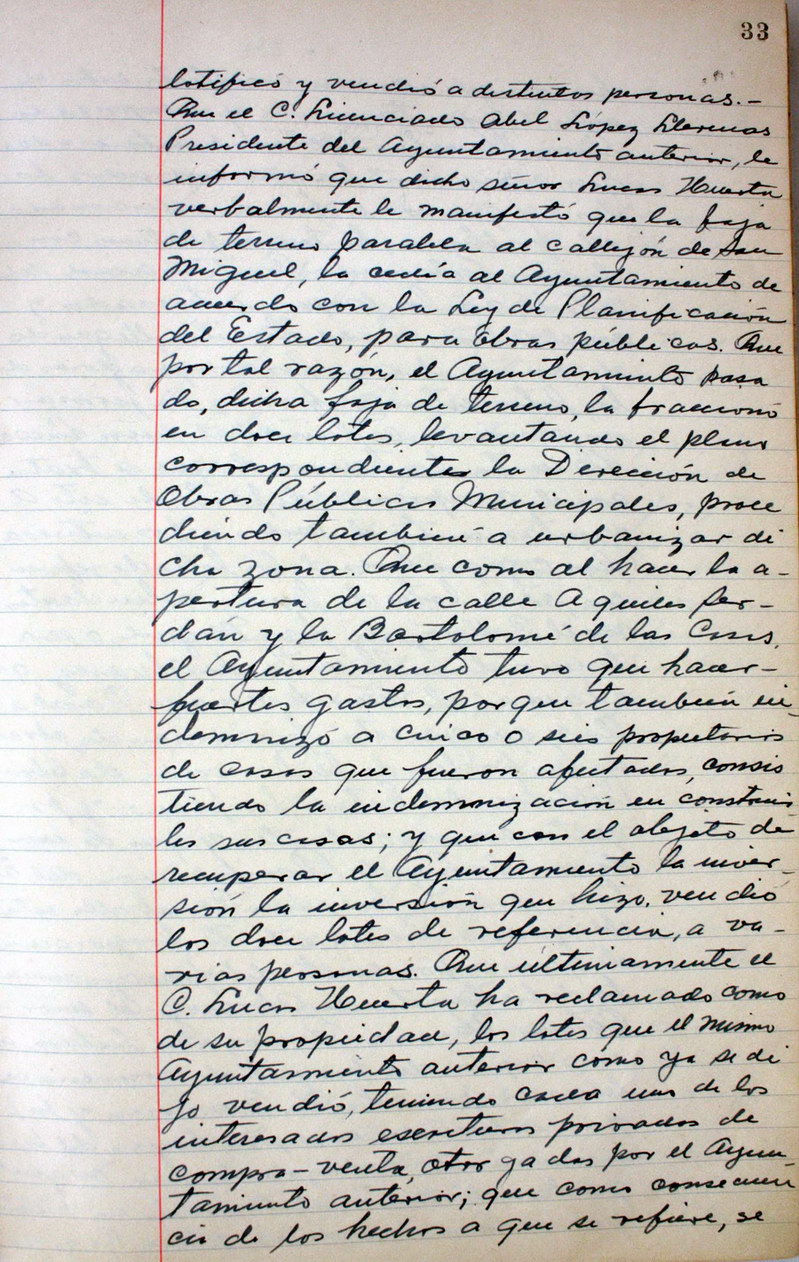 33
lotificó y vendió a distintos personas.—
Que el C. Licenciado Abel López Llerenas
Presidente del Ayuntamiento anterior, le
informó que dicho señor Lucas Huerta
verbalmente le manifestó que la faja
de terreno paralela al callejón de San
Miguel, la cedía al Ayuntamiento de
acuerdo con la Ley de Planificación
del Estado, para obras públicas. Que
por tal razón, el Ayuntamiento pasa
do, dicha faja de terreno, la fraccionó
en doce lotes, levantando el plano
correspondiente la Dirección de
Obras Públicas Municipales, proce
diendo también a urbanizar di
cha zona. Que como al hacer la a-
pertura de la calle Aquiles Ser-
dán y la Bartolomé de las Casas,
el Ayuntamiento tuvo que hacer-
fuertes gastos, porque también in-
demnizó a cinco o seis propietarios
de casas que fueron afectados, consis
tiendo la indemnización en construir
les sus casas; y que con el objeto de
recuperar el Ayuntamiento la inver-
sión la inversión que hizo, vendió
los doce lotes de referencia, a va-
rias personas. Que últimamente el
C. Lucas Huerta ha reclamado como
de su propiedad, los lotes que el mismo
Ayuntamiento anterior como ya se di
jo vendió, teniendo cada uno de los
interesados escrituras privadas de
compra-venta, otorgadas por el Ayun-
tamiento anterior; que como consecuen
cia de los hechos a que se refiere, se